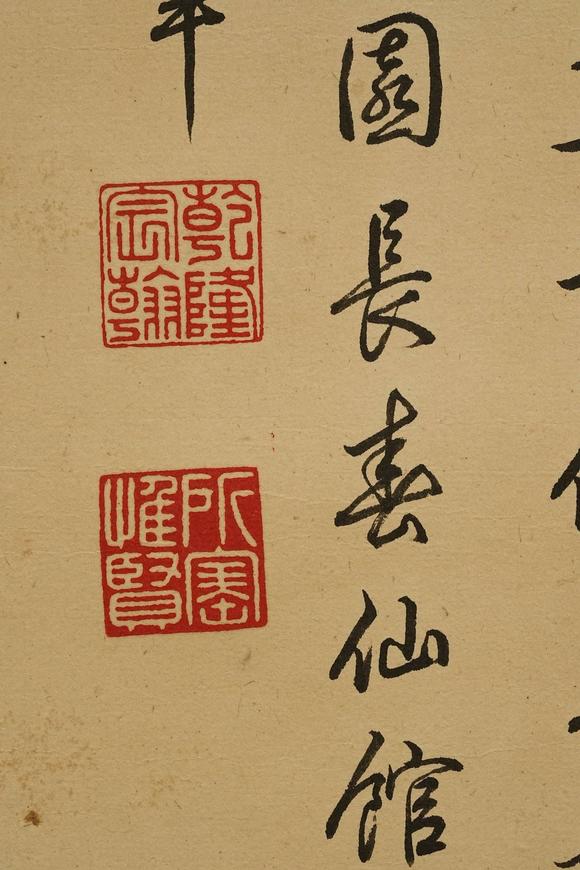 園長春仙館
乾隆
宸翰
所寶
惟賢